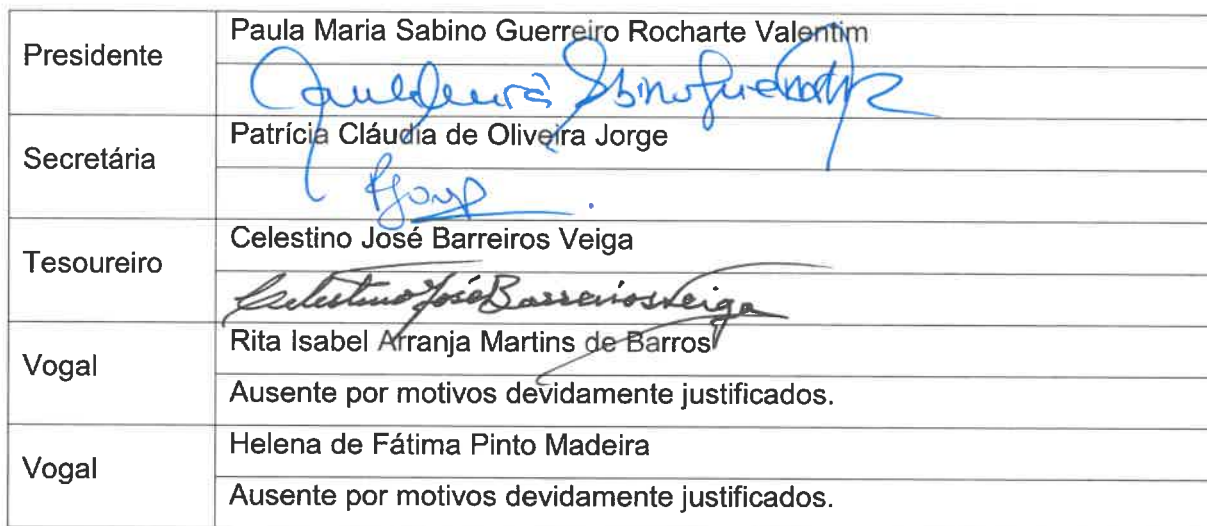 Presidente
Paula Maria Sabino Guerreiro Rocharte Valentim
Secretária
Patrícia Cláudia de Oliveira Jorge
PJorge
Tesoureiro
Celestino José Barreiros Veiga
Celestino José Barreiros Veiga
Vogal
Rita Isabel Arranja Martins de Barros
Ausente por motivos devidamente justificados.
Vogal
Helena de Fátima Pinto Madeira
Ausente por motivos devidamente justificados.